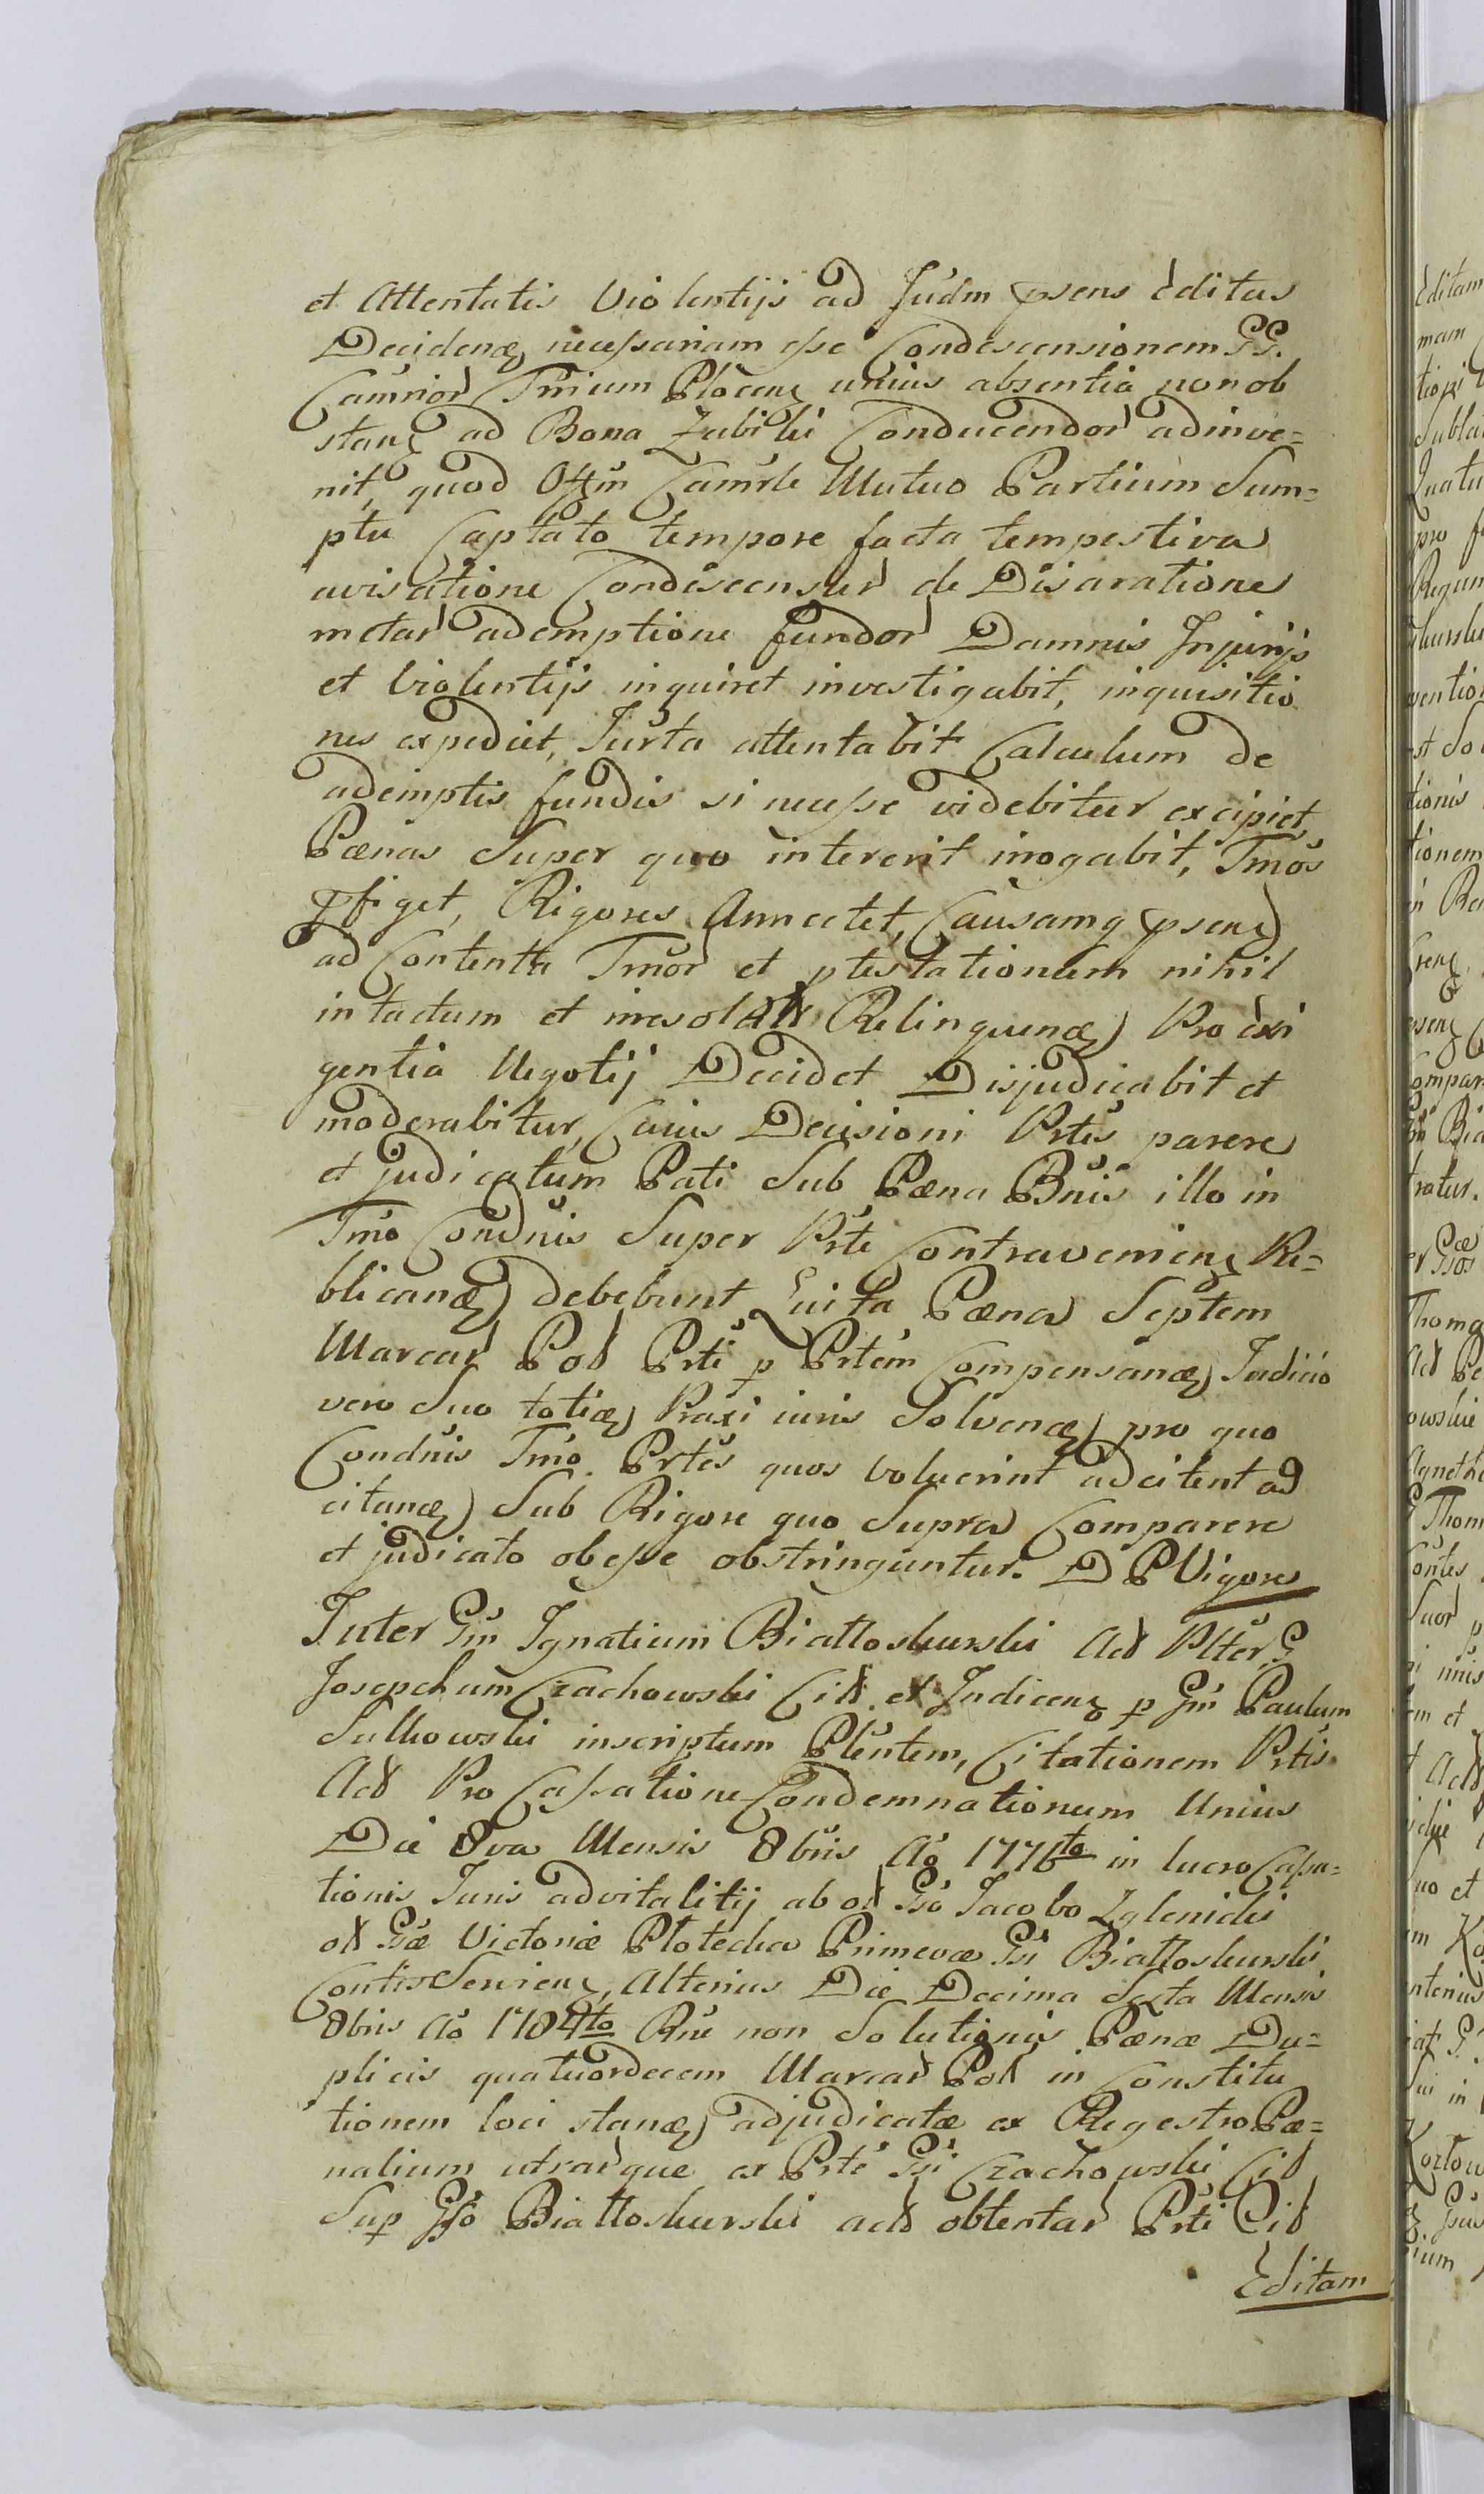 et Attentatis Violentijs ad Judm psens Editus
Decidenæ necessariam esse Condescensionem GG.
Camrior Trnium Plocen unius absentia non ob
stan ad Bona Zabiki Conducendor adinve=
nit, quod Offm Camrle Mutuo Partium Sum=
ptu Captato tempore facta tempestiva
avisatione Condiscensur de Disaratione
metar ademptione fundor Damnis Injurijs
et Violentijs inquiret investigabit, inquisitio
nes expediet, Jurta attentabit Calculum de
ademptis fundis si necesse videbitur excipiet
Pænas Super quo intererit irrogabit, Tmos
pfiget, Rigores Annectet, Causamq psen
ad Contenta Tmor et ptestationum nihil
intactum et irresol Relinquenæ Pro exi
gentia Negotij Decidet Disjudicabit et
moderabitur, Cuius Decisioni Prtes parere
et judicatum Pati Sub Pæna Bnis illo in
Tmo Condnis Super Prte Contravenien Re=
blicanæ debebunt Luita Pæna Septem
Marcar Pol Prti p Prtem Compensanæ Judicio
vero Suo totiæ Praxi iuris Solvenæ pro quo
Condnis Tmo. Prtes quos voluerint adcitent ad
citanæ Sub Rigore quo Supra Comparere
et judicato obesse obstringuntur. D P Vigore
Inter Gm Ignatium Biattoskurski Act Plter G
Josepchum Czachowski Cit et Judicen p Gm Paulum
Sulkowski inscriptum Plentem, Citationem Prtis
Act Pro Cassatione Condemnationum Unius
Die 8va Mensis 8bris Ao 1776to in lucro Cassa=
tionis Juris advitalitij ab ol Gso Jacobo Zglenicki
ol Gsæ Victoriæ Plotecka Primevæ Gsi Biattoskurski
Conti Servien, Alterius Die Decima Sexta Mensis
8bris Ao 1784to Rne non Solutionis Pænæ Du=
plicis quatuordecem Marcar Pol in Constitu
tionem loci stanæ adjudicatæ ex Regestro Pæ=
nalium utrarque ex Prte Gsi Czachowski Cit
Sup Gso Biattoskurski act obtentar Prti Cit
Editam